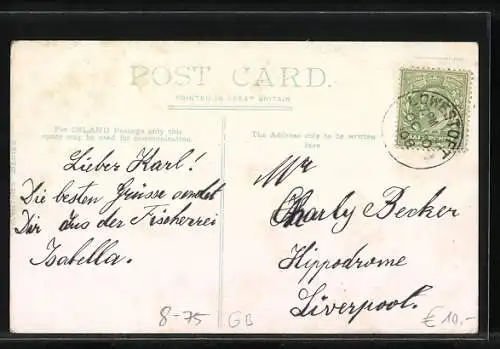 POST CARD.
PRINTED IN GREAT BRITAIN
For INLAND Postage only this
space may be used for communication.
The Address only to be written
here
LOWESTOFT
Lieber Karl!
Die besten Grüsse sendet
Dir aus der Fischerrei
Isabella.
Mr
Charly Becker
Hippodrome
Liverpool.
8-75
GB
€ 10.-